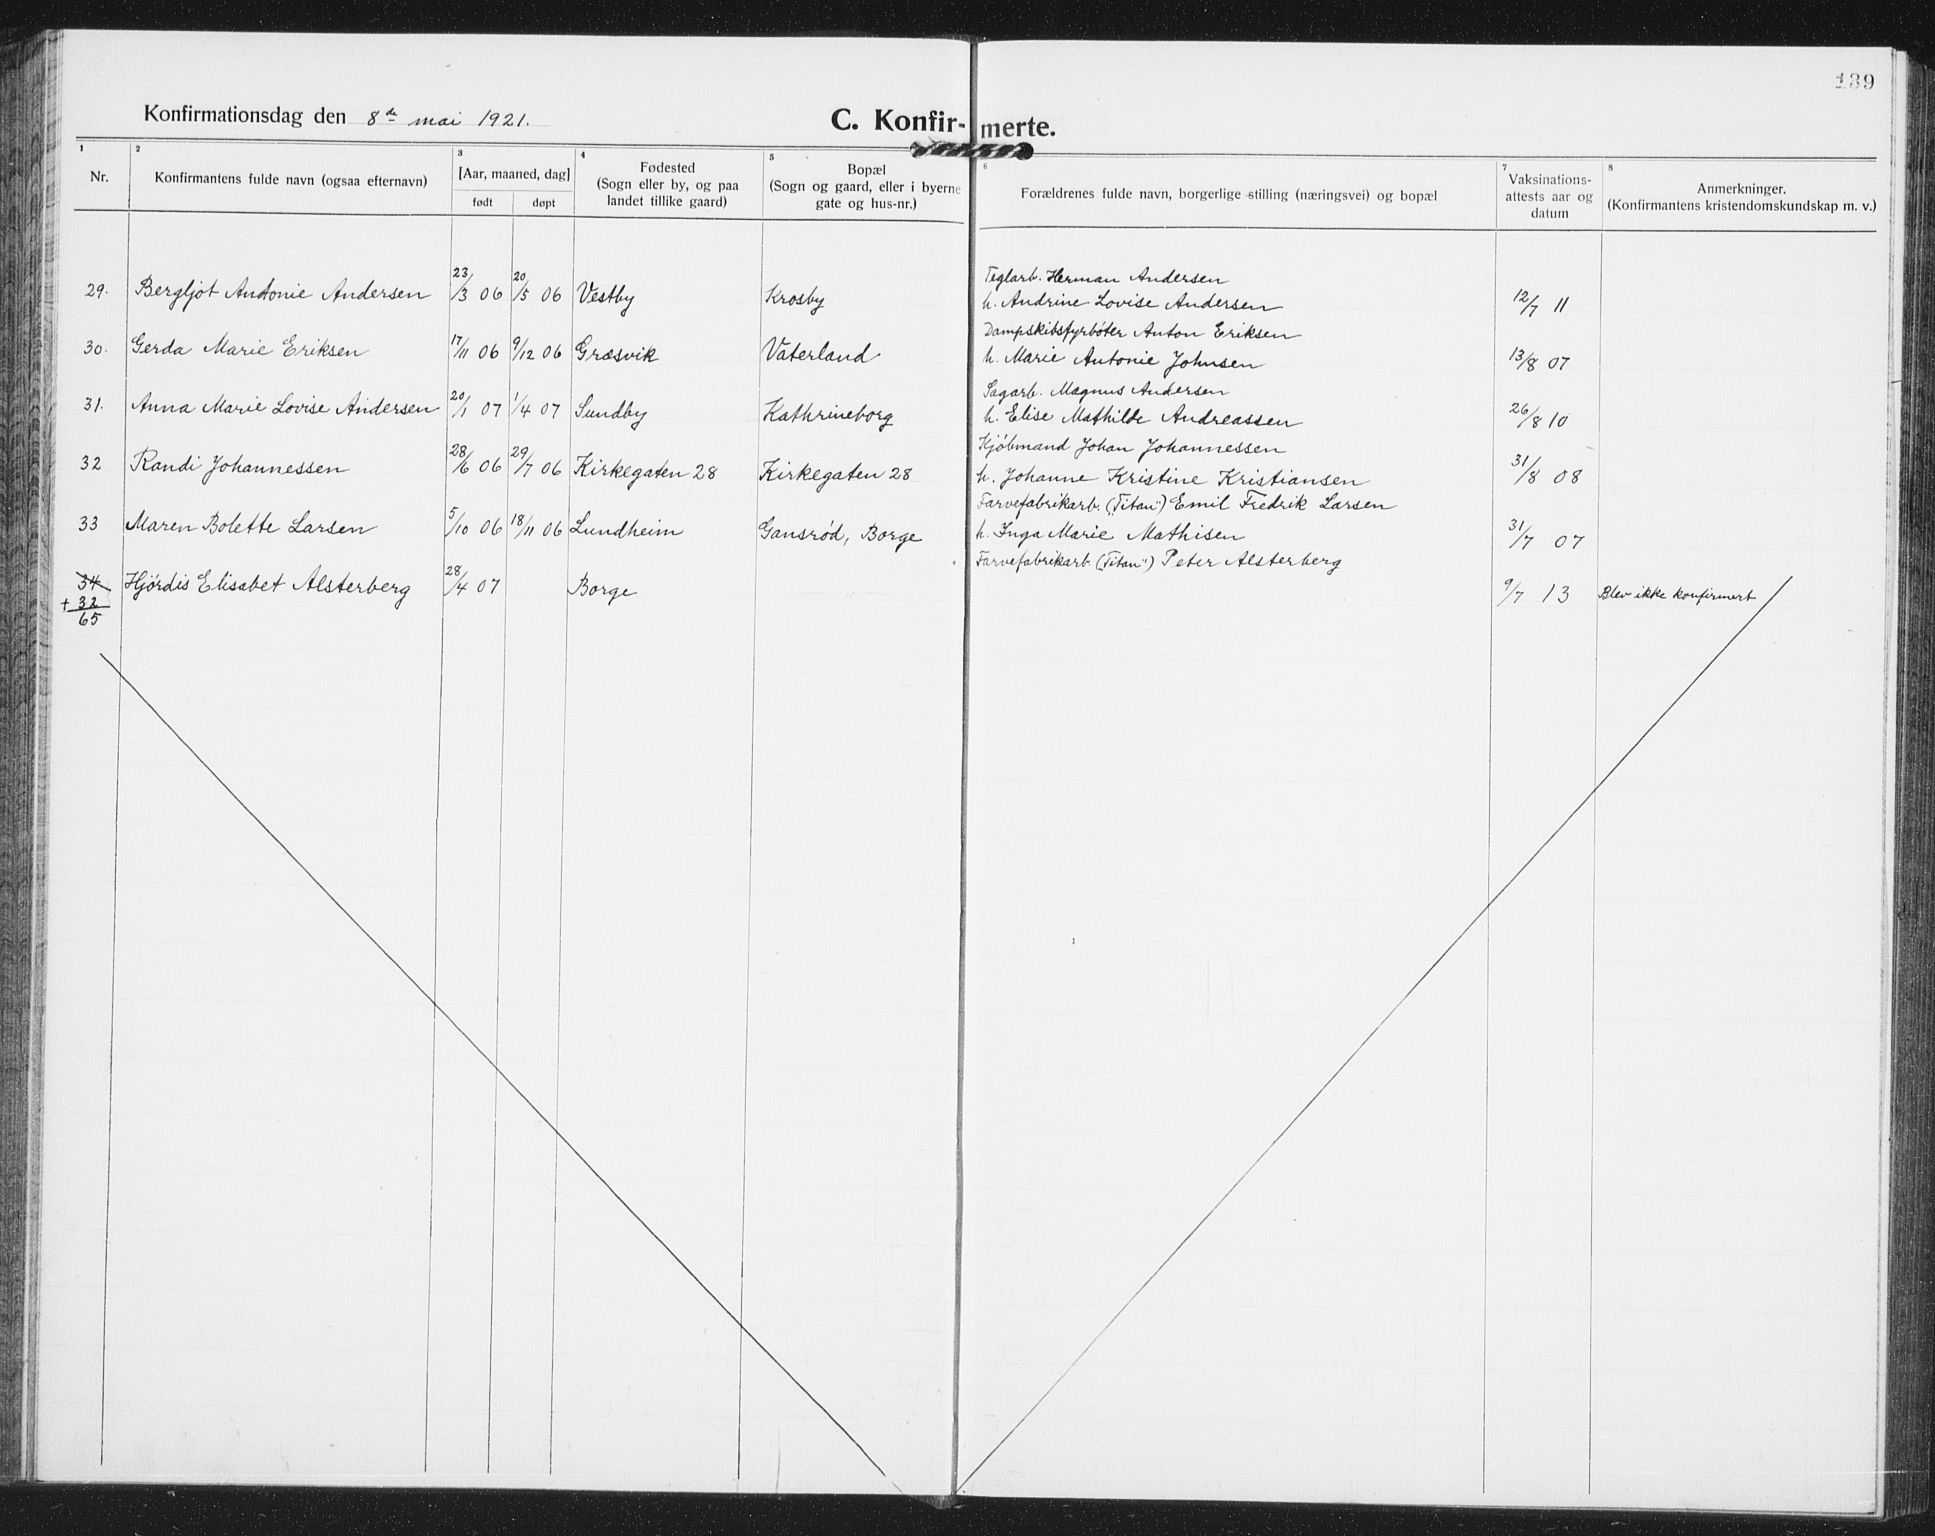 139
Konfirmationsdag den 8de mai 1921.
C. Konfir-merte.
1 2 3 4 5 6 7 8
Nr.
Konfirmantens fulde navn (ogsaa efternavn)
[Aar, maaned, dag]
født døpt
Fødested
(Sogn eller by, og paa
landet tillike gaard)
Bopæl
(Sogn og gaard, eller i byerne
gate og hus-nr.)
Forældrenes fulde navn, borgerlige stilling (næringsvei) og bopæl
Vaksinations-
attests aar og
datum
Anmerkninger.
(Konfirmantens kristendomskundskap m. v.)
Teglarb. Herman Andersen
29. Bergljot Antonie Andersen 23/3 06 20/5 06 Vestby Krosby h. Andrine Lovise Andersen 12/7 11
Dampskibsfyrbøter Anton Eriksen
30. Gerda Marie Eriksen 17/11 06 9/12 06 Græsvik Vaterland h. Marie Antonie Johnsen 13/8 07
Sagarb. Magnus Andersen
31. Anna Marie Lovise Andersen 20/1 07 1/4 07 Sundby Kathrineborg h. Elise Mathilde Andreassen 26/8 10
Kjøbmand Johan Johannessen
32 Randi Johannessen 28/6 06 29/7 06 Kirkegaten 28 Kirkegaten 28 h. Johanne Kristine Kristiansen 31/8 08
Farvefabrikarb. („Titan") Emil Fredrik Larsen
33 Maren Bolette Larsen 5/10 06 18/11 06 Lundheim Gansrød, Borge h. Inga Marie Mathisen 31/7 07
Farvefabrikarb. („Titan") Peter Alsterberg
34 Hjørdis Elisabet Alsterberg 28/4 07 Borge 9/7 13 Blev ikke konfirmert
+ 32
65